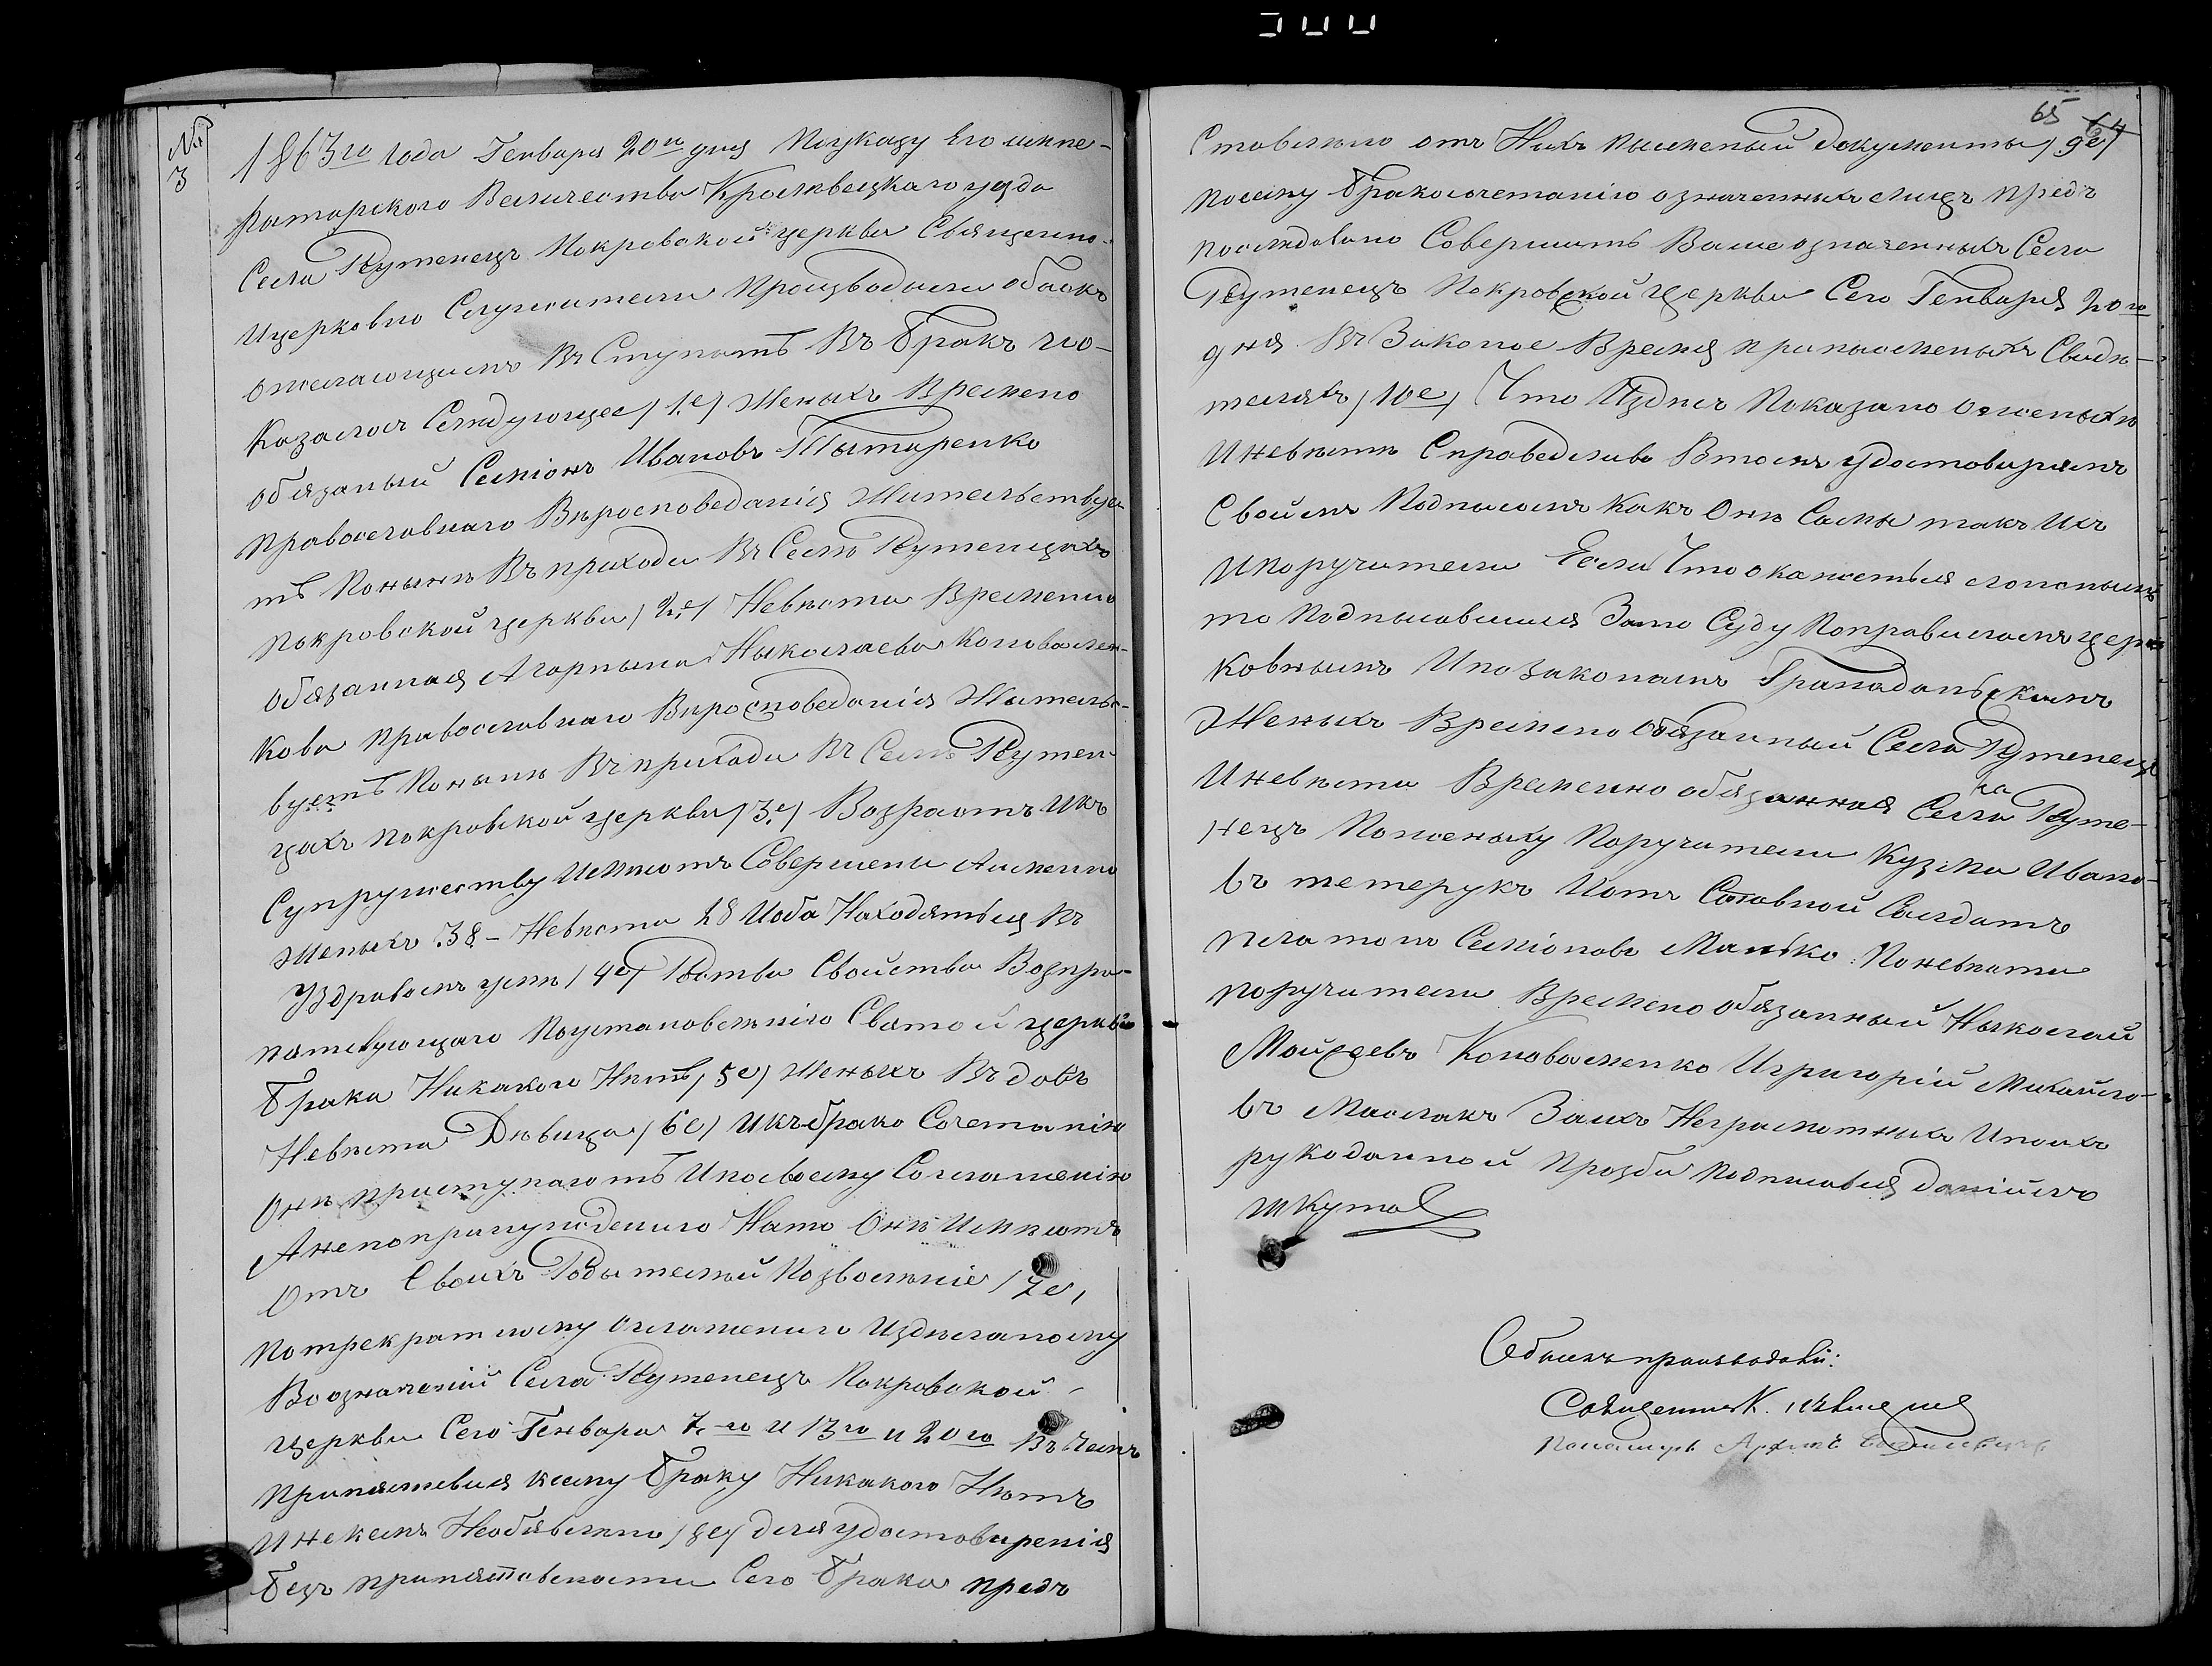 №
3
1863го года Генваря 20го дня Поуказу Его импе-
раторского Величества Кролевецкаго уезда
Села Рутенецъ Покровской церкви Священно-
Ицерковно Служители Производили обыскъ
ожелающимъ ВъСтупать Въ бракъ ио-
казалось Следующее /1.е/ Женыхъ Времено
обязаный Семіонъ Ивановъ Тытаренко
православнаго Вероисповеданія Жительствуе
тъ Поныне Въ приходи ВъСеле Рутенцахъ
покровской церкви /2.е/ Невеста Временно
обязанная Агарпына Ныколаева Коновален-
кова православнаго Вироисповеданія Жительс-
вуетъ Поныне Въприходи Въ Селе Рутен-
цахъ покровской церкви /3.е/ Возрастъ Икъ
Супружеству Имеютъ Совершены Аименно
Женыхъ 38 – Невеста 28 Иоба Находятьця Въ
Уздравомъ уме /4е/ Родства Свойства Возпре-
пятствующаго Поустановленнію Святой церкви
брака Никакого Неть /5е/ Женыхъ Въдовъ
Невеста Девица /6е/ Икъ брако Сочетанію
Они приступають Иповоему Согглашенію
Анепопринуждению Нато Они Имеютъ
Отъ Своихъ Родытелей Позволеніе /7е/
потрекратному оглашению Изделаному
Воозначеній Села Рутенецъ Покровской
церкви Сего Генвара 7го и 13го и 20го Въ Чемъ
припятствия ксему браку Никакого Нетъ
Инекемъ Необявлено /8е/ для удостовиренія
безъ припятсвености Сего брака предъ
65 64
Ставлено отъ Нихъ пысменый документы /9е/
посему бракосочетанію означенныхъ лицъ предъ
последовано Совершить Ваше означенныхъ Села
Рутенецъ Покровской церкви Сего Генваря 20го
дня ВъЗаконое Время припысменыхъ Свиде-
теляхъ /10е/ Что Издесь Показано оженыхе
Иневесте Справедливо Втомъ удостовиряемъ
Своимъ Подписомъ Какъ Они Самы такъ Ихъ
Ипоручители Если Что окажетьця ложнымъ
то Подписавшися Зато Суду Поправиламъ цер
ковнымъ Ипозаконамъ Гражданьскимъ
Женыхъ Времено обязанный Села Рутенецъ
Иневеста Временно обязанная Села Руте-
нецъ Поженыху Поручители Кузма Ивано-
въ тетерукъ Иотъ Ставной Салдатъ
платонъ Семіоновъ Манько. Поневесте
поручители Времено обязанный Ныколай
Мойсеевъ Коноваленко Игригорій Михайло-
въ Маслакъ Заихъ Неграмотныхъ Ипоихъ
рукоданной прозби подписався Даніилъ
Шкута
Обыскъ производій:
Понамарь